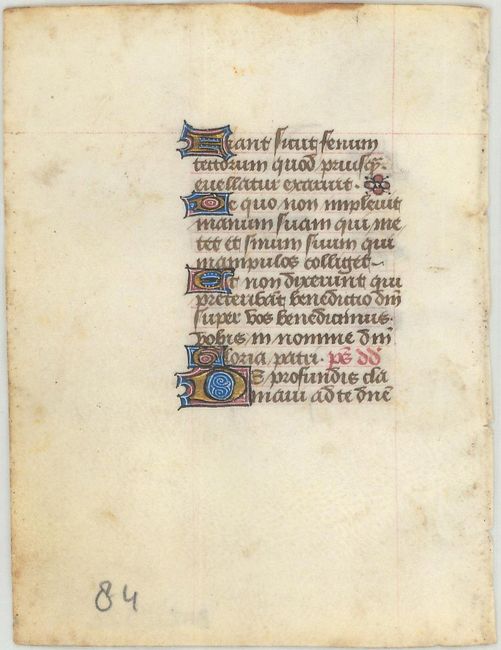 Fiant sicut fenum
tectorum quod priusq̃
evellatur exaruit.
De quo non implevit
manum suam qui me
tet et sinum suum qui
manipulos colliget.
Et non dixerunt qui
preteribãt benedictio dñi
super vos benedicimus
vobis in nomine dñi
Gloria patri. p̃s dd
De profundis cla
mavi ad te dñe
84